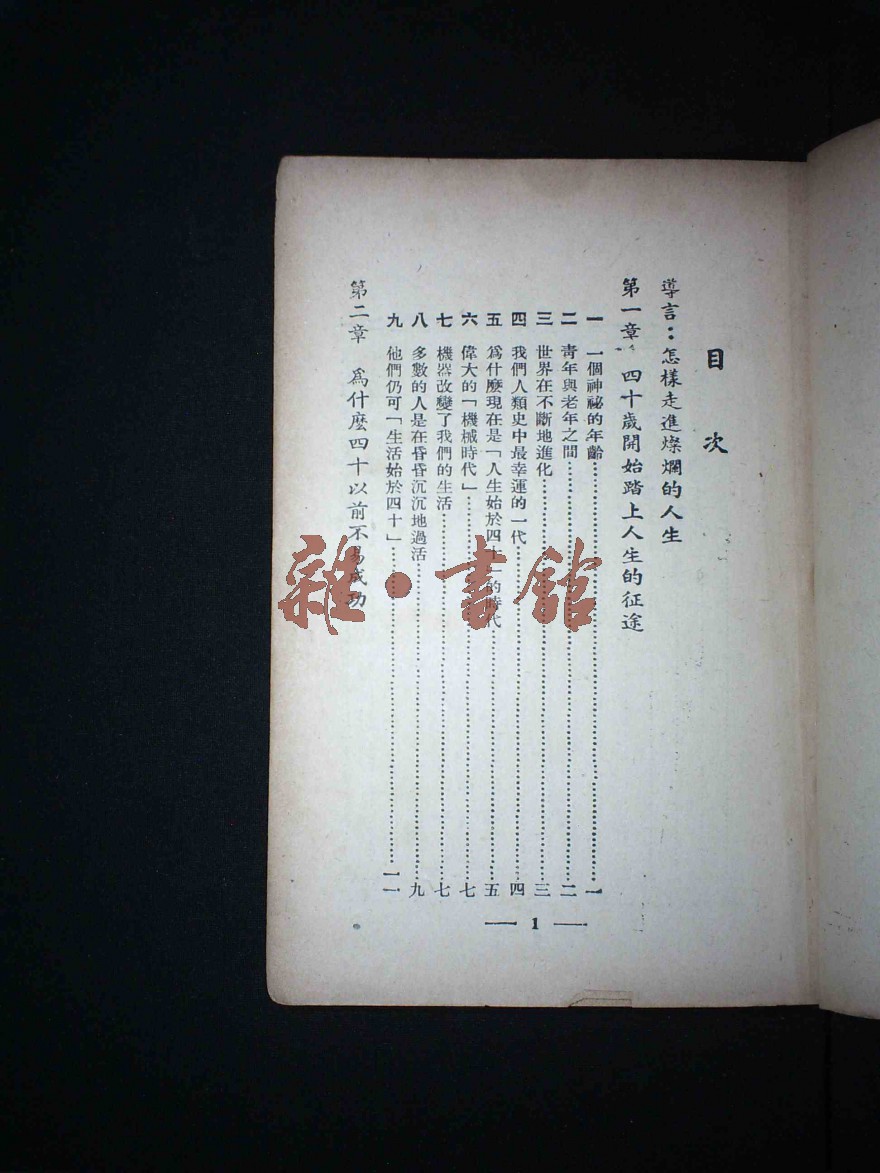 目次
導言：怎樣走進燦爛的人生
第一章 四十歲開始踏上人生的征途
一 一個神祕的年齡……一
二 青年與老年之間……二
三 世界在不斷地進化……三
四 我們人類史中最幸運的一代……四
五 爲什麼現在是「人生始於四十」的時代……五
六 偉大的「機械時代」……七
七 機器改變了我們的生活……七
八 多數的人是在昏昏沉沉地過活……九
九 他們仍可「生活始於四十」……一一
第二章 爲什麼四十以前不易成功
— 1 —
雜·書館